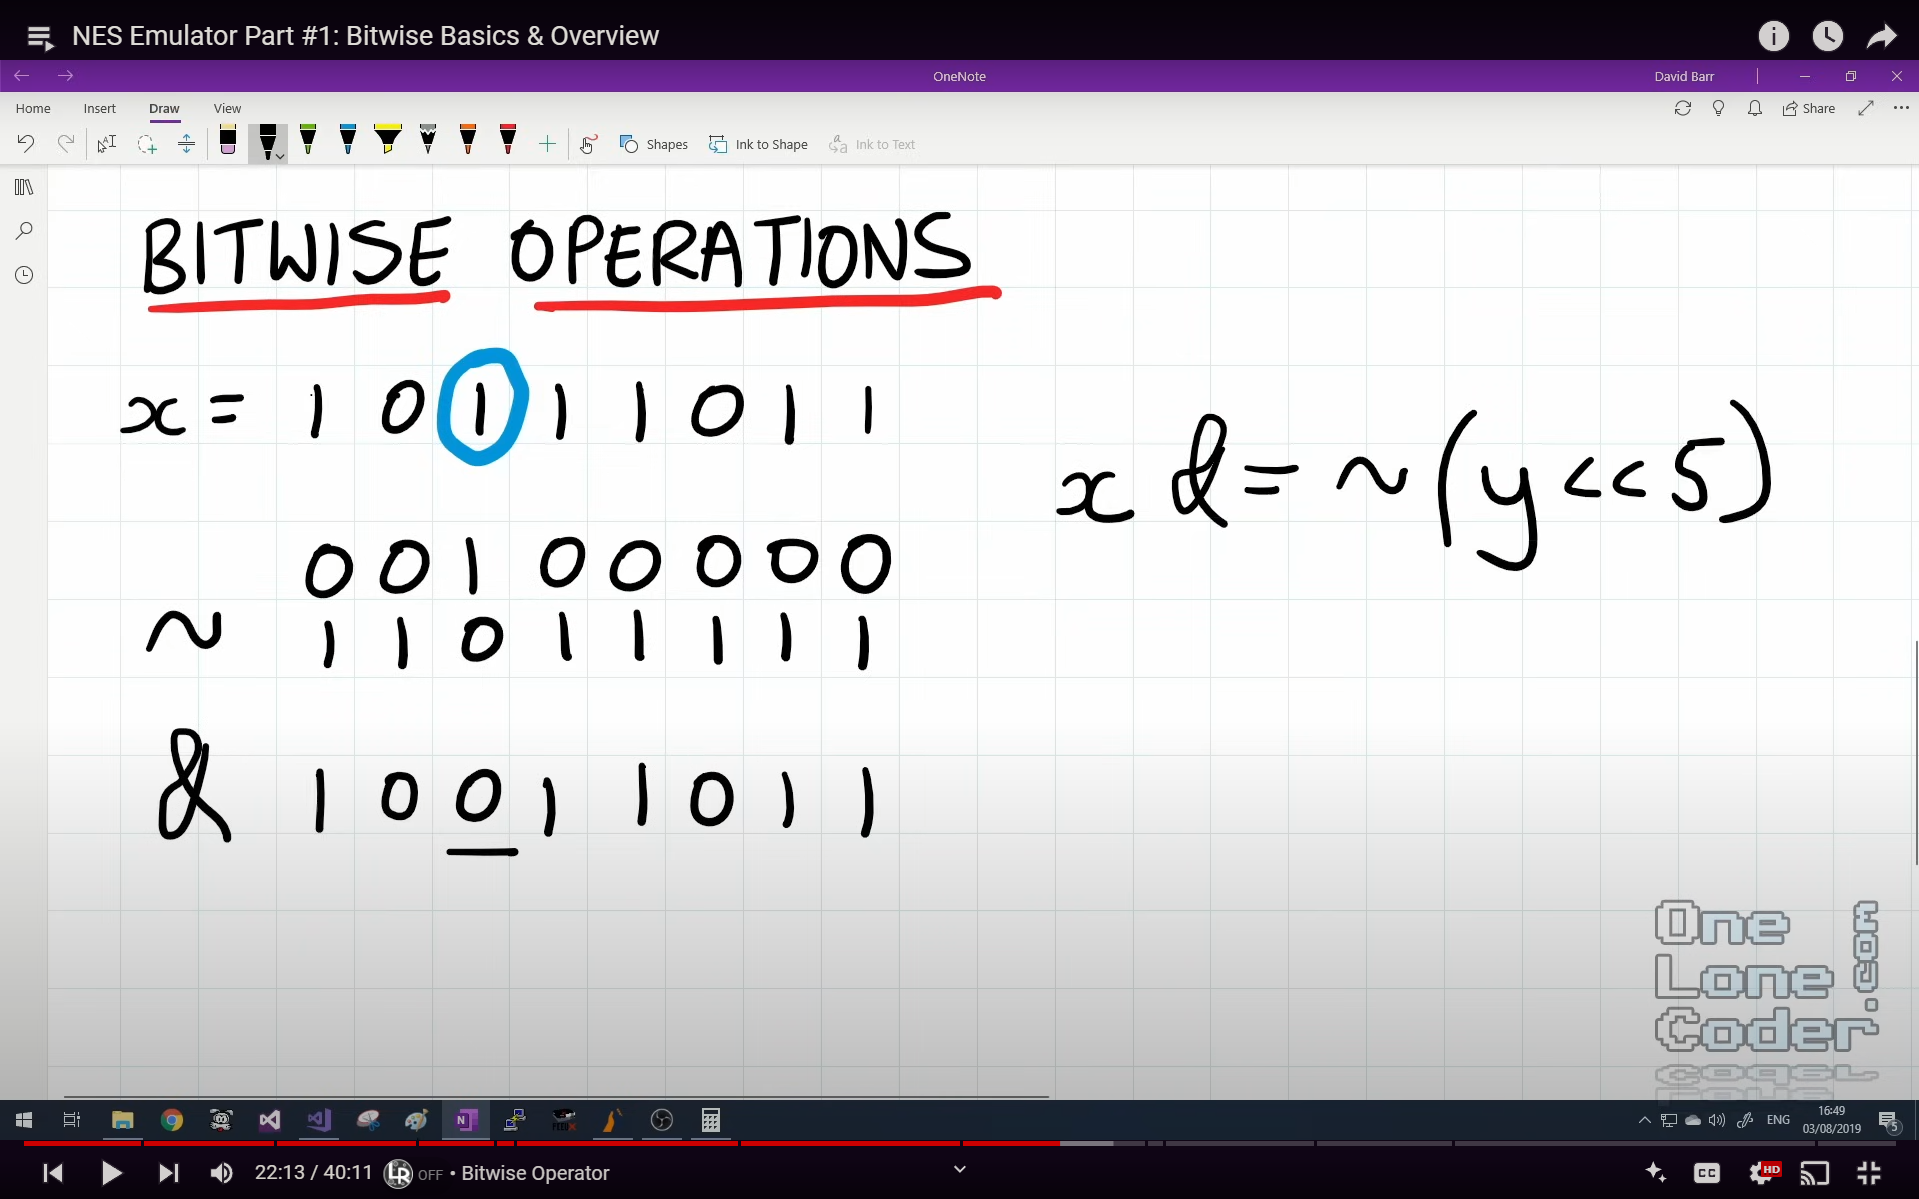 NES Emulator Part #1: Bitwise Basics & Overview
OneNote
David Barr
Home Insert Draw View
Share
Shapes Ink to Shape Ink to Text
BITWISE OPERATIONS
x = 1 0 1 1 1 0 1 1
x &= ~(y<<5)
0 0 1 0 0 0 0 0
~ 1 1 0 1 1 1 1 1
& 1 0 0 1 1 0 1 1
One
Lone
Coder
.com
ENG
16:49
03/08/2019
5
22:13 / 40:11 LR OFF • Bitwise Operator
CC HD